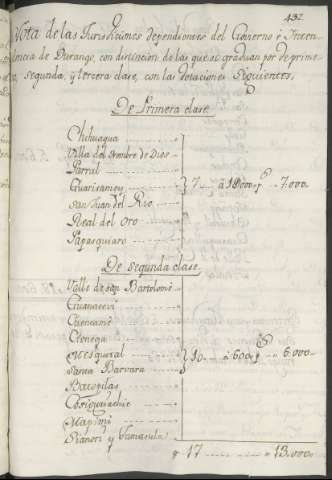 432
Nota de las Jurisdiciones dependientes del Govierno é Inten-
dencia de Durango, con distincion de las que se graduan por de prime-
ra, segunda, y tercera clase, con las dotaciones siguientes.
De Primera clase.
Chihuagua
Villa del Nombre de Dios
Parral
Guarisamey } 7 .. á 1ỻ000 p.s .. 7.000
San Juan del Rio
Real del Oro
Papasquiaro
De segunda clase
Valle de San Bartolomé
Guanacevi
Cuencamé
Cienega
Mesquital } 10 .. á 600 p.s .. 6.000
Santa Barvara
Batopilas
Cosiguriachic
Mapimi
Sianori y Tamasula
17 ... 13.000